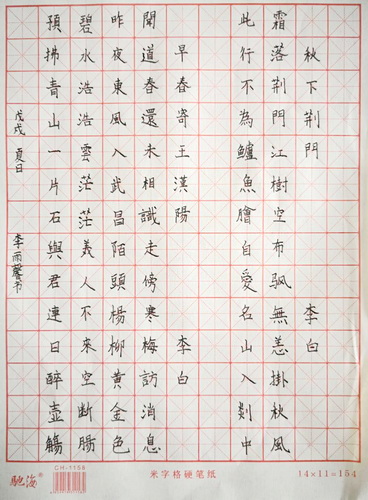 秋下荆門 李白
霜落荆門江樹空布颿無恙掛秋風
此行不為鱸魚膾自愛名山入剡中
早春寄王漢陽 李白
聞道春還未相識走傍寒梅訪消息
昨夜東風入武昌陌頭楊柳黄金色
碧水浩浩雲茫茫美人不來空斷腸
預拂青山一片石與君連日醉壺觴
戊戌夏日 李雨馨书
驰海®
CH-1155
米字格硬笔纸
14×11=154